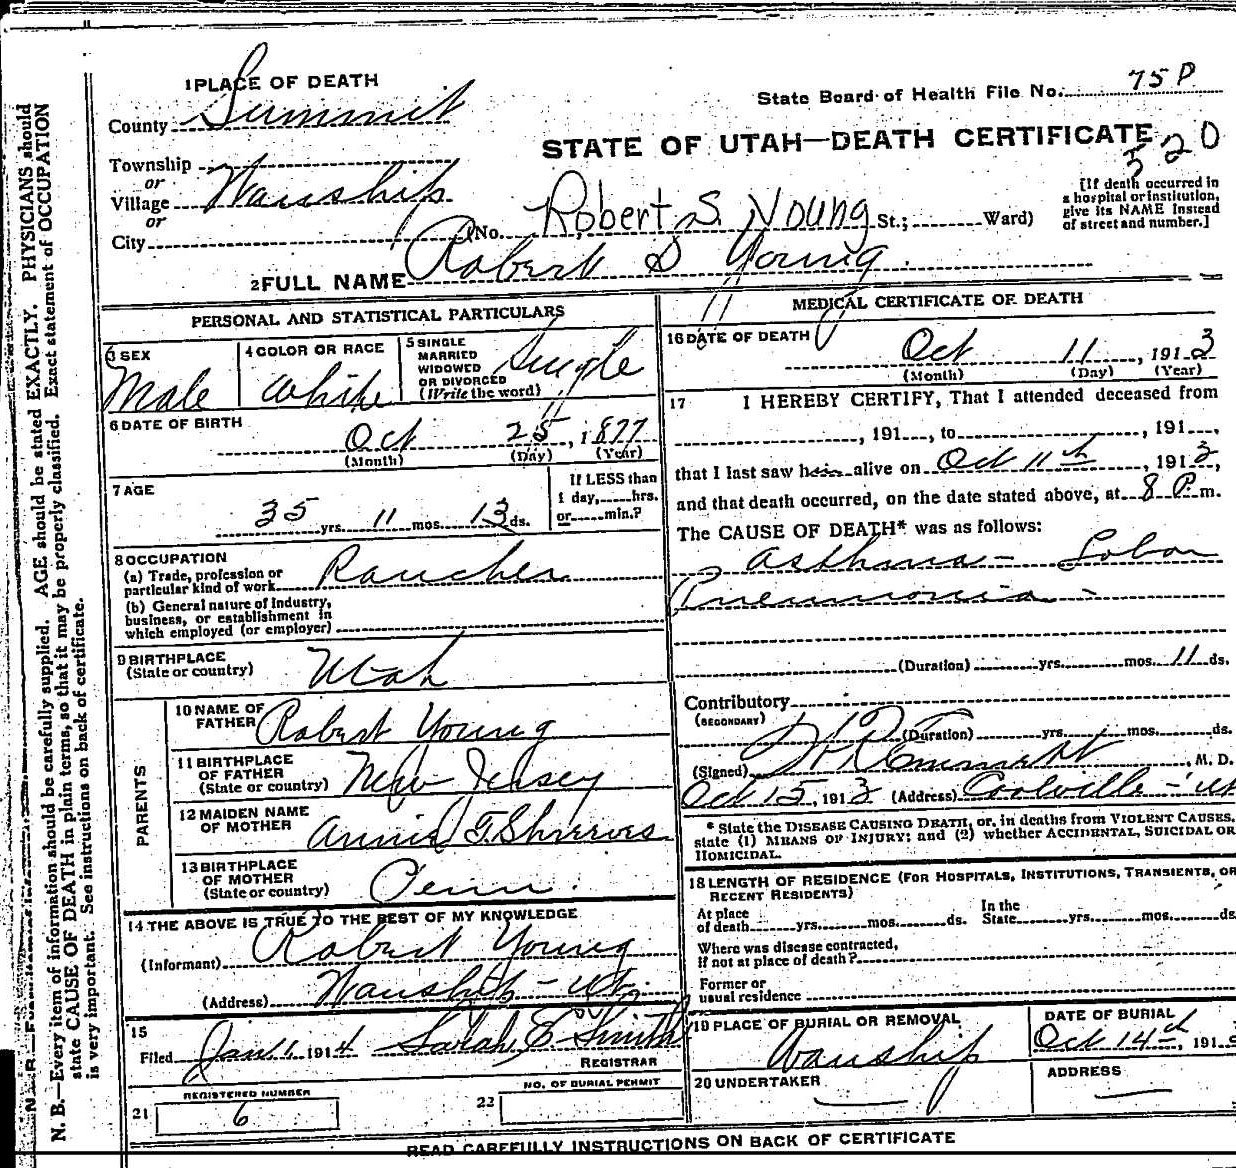 N. B.—Every item of information should be carefully supplied. AGE should be stated EXACTLY. PHYSICIANS should
state CAUSE OF DEATH in plain terms, so that it may be properly classified. Exact statement of OCCUPATION
is very important. See instructions on back of certificate.
1 PLACE OF DEATH
State Board of Health File No. 75 P
County Summit
STATE OF UTAH—DEATH CERTIFICATE
320
Township
or
Village Wanship
or
City
(No. Robert S. Young St.; Ward)
[If death occurred in
a hospital or institution,
give its NAME instead
of street and number.]
2 FULL NAME Robert S Young
PERSONAL AND STATISTICAL PARTICULARS
3 SEX
Male
4 COLOR OR RACE
White
5 SINGLE
MARRIED
WIDOWED
OR DIVORCED
(Write the word)
Single
6 DATE OF BIRTH
Oct 25, 1877
(Month) (Day) (Year)
7 AGE
35 yrs. 11 mos. 13 ds.
If LESS than
1 day, hrs.
or min.?
8 OCCUPATION
(a) Trade, profession or
particular kind of work Rancher
(b) General nature of Industry,
business, or establishment in
which employed (or employer)
9 BIRTHPLACE
(State or country) Utah
PARENTS
10 NAME OF
FATHER Robert Young
11 BIRTHPLACE
OF FATHER
(State or country) New Jersey
12 MAIDEN NAME
OF MOTHER Annie F. Shreeves
13 BIRTHPLACE
OF MOTHER
(State or country) Penn.
14 THE ABOVE IS TRUE TO THE BEST OF MY KNOWLEDGE
(Informant) Robert Young
(Address) Wanship - Ut.
15
Filed Jan 1, 1914 Sarah E Smith
REGISTRAR
21 REGISTERED NUMBER
6
22 NO. OF BURIAL PERMIT
MEDICAL CERTIFICATE OF DEATH
16 DATE OF DEATH
Oct 11, 1913
(Month) (Day) (Year)
17 I HEREBY CERTIFY, That I attended deceased from
, 191 , to , 191 ,
that I last saw him alive on Oct 11th, 1913,
and that death occurred, on the date stated above, at 8 P. m.
The CAUSE OF DEATH* was as follows:
Asthma - Lobar
Pneumonia -
(Duration) yrs. mos. 11 ds.
Contributory
(SECONDARY)
(Duration) yrs. mos. ds.
(Signed) , M. D.
Oct 15, 1913 (Address) Coalville - Ut
* State the DISEASE CAUSING DEATH, or, in deaths from VIOLENT CAUSES,
state (1) MEANS OF INJURY; and (2) whether ACCIDENTAL, SUICIDAL OR
HOMICIDAL.
18 LENGTH OF RESIDENCE (FOR HOSPITALS, INSTITUTIONS, TRANSIENTS, OR
RECENT RESIDENTS)
At place
of death yrs. mos. ds.
In the
State yrs. mos. ds.
Where was disease contracted,
if not at place of death?
Former or
usual residence
19 PLACE OF BURIAL OR REMOVAL
Wanship
DATE OF BURIAL
Oct 14th, 191
20 UNDERTAKER
ADDRESS
READ CAREFULLY INSTRUCTIONS ON BACK OF CERTIFICATE